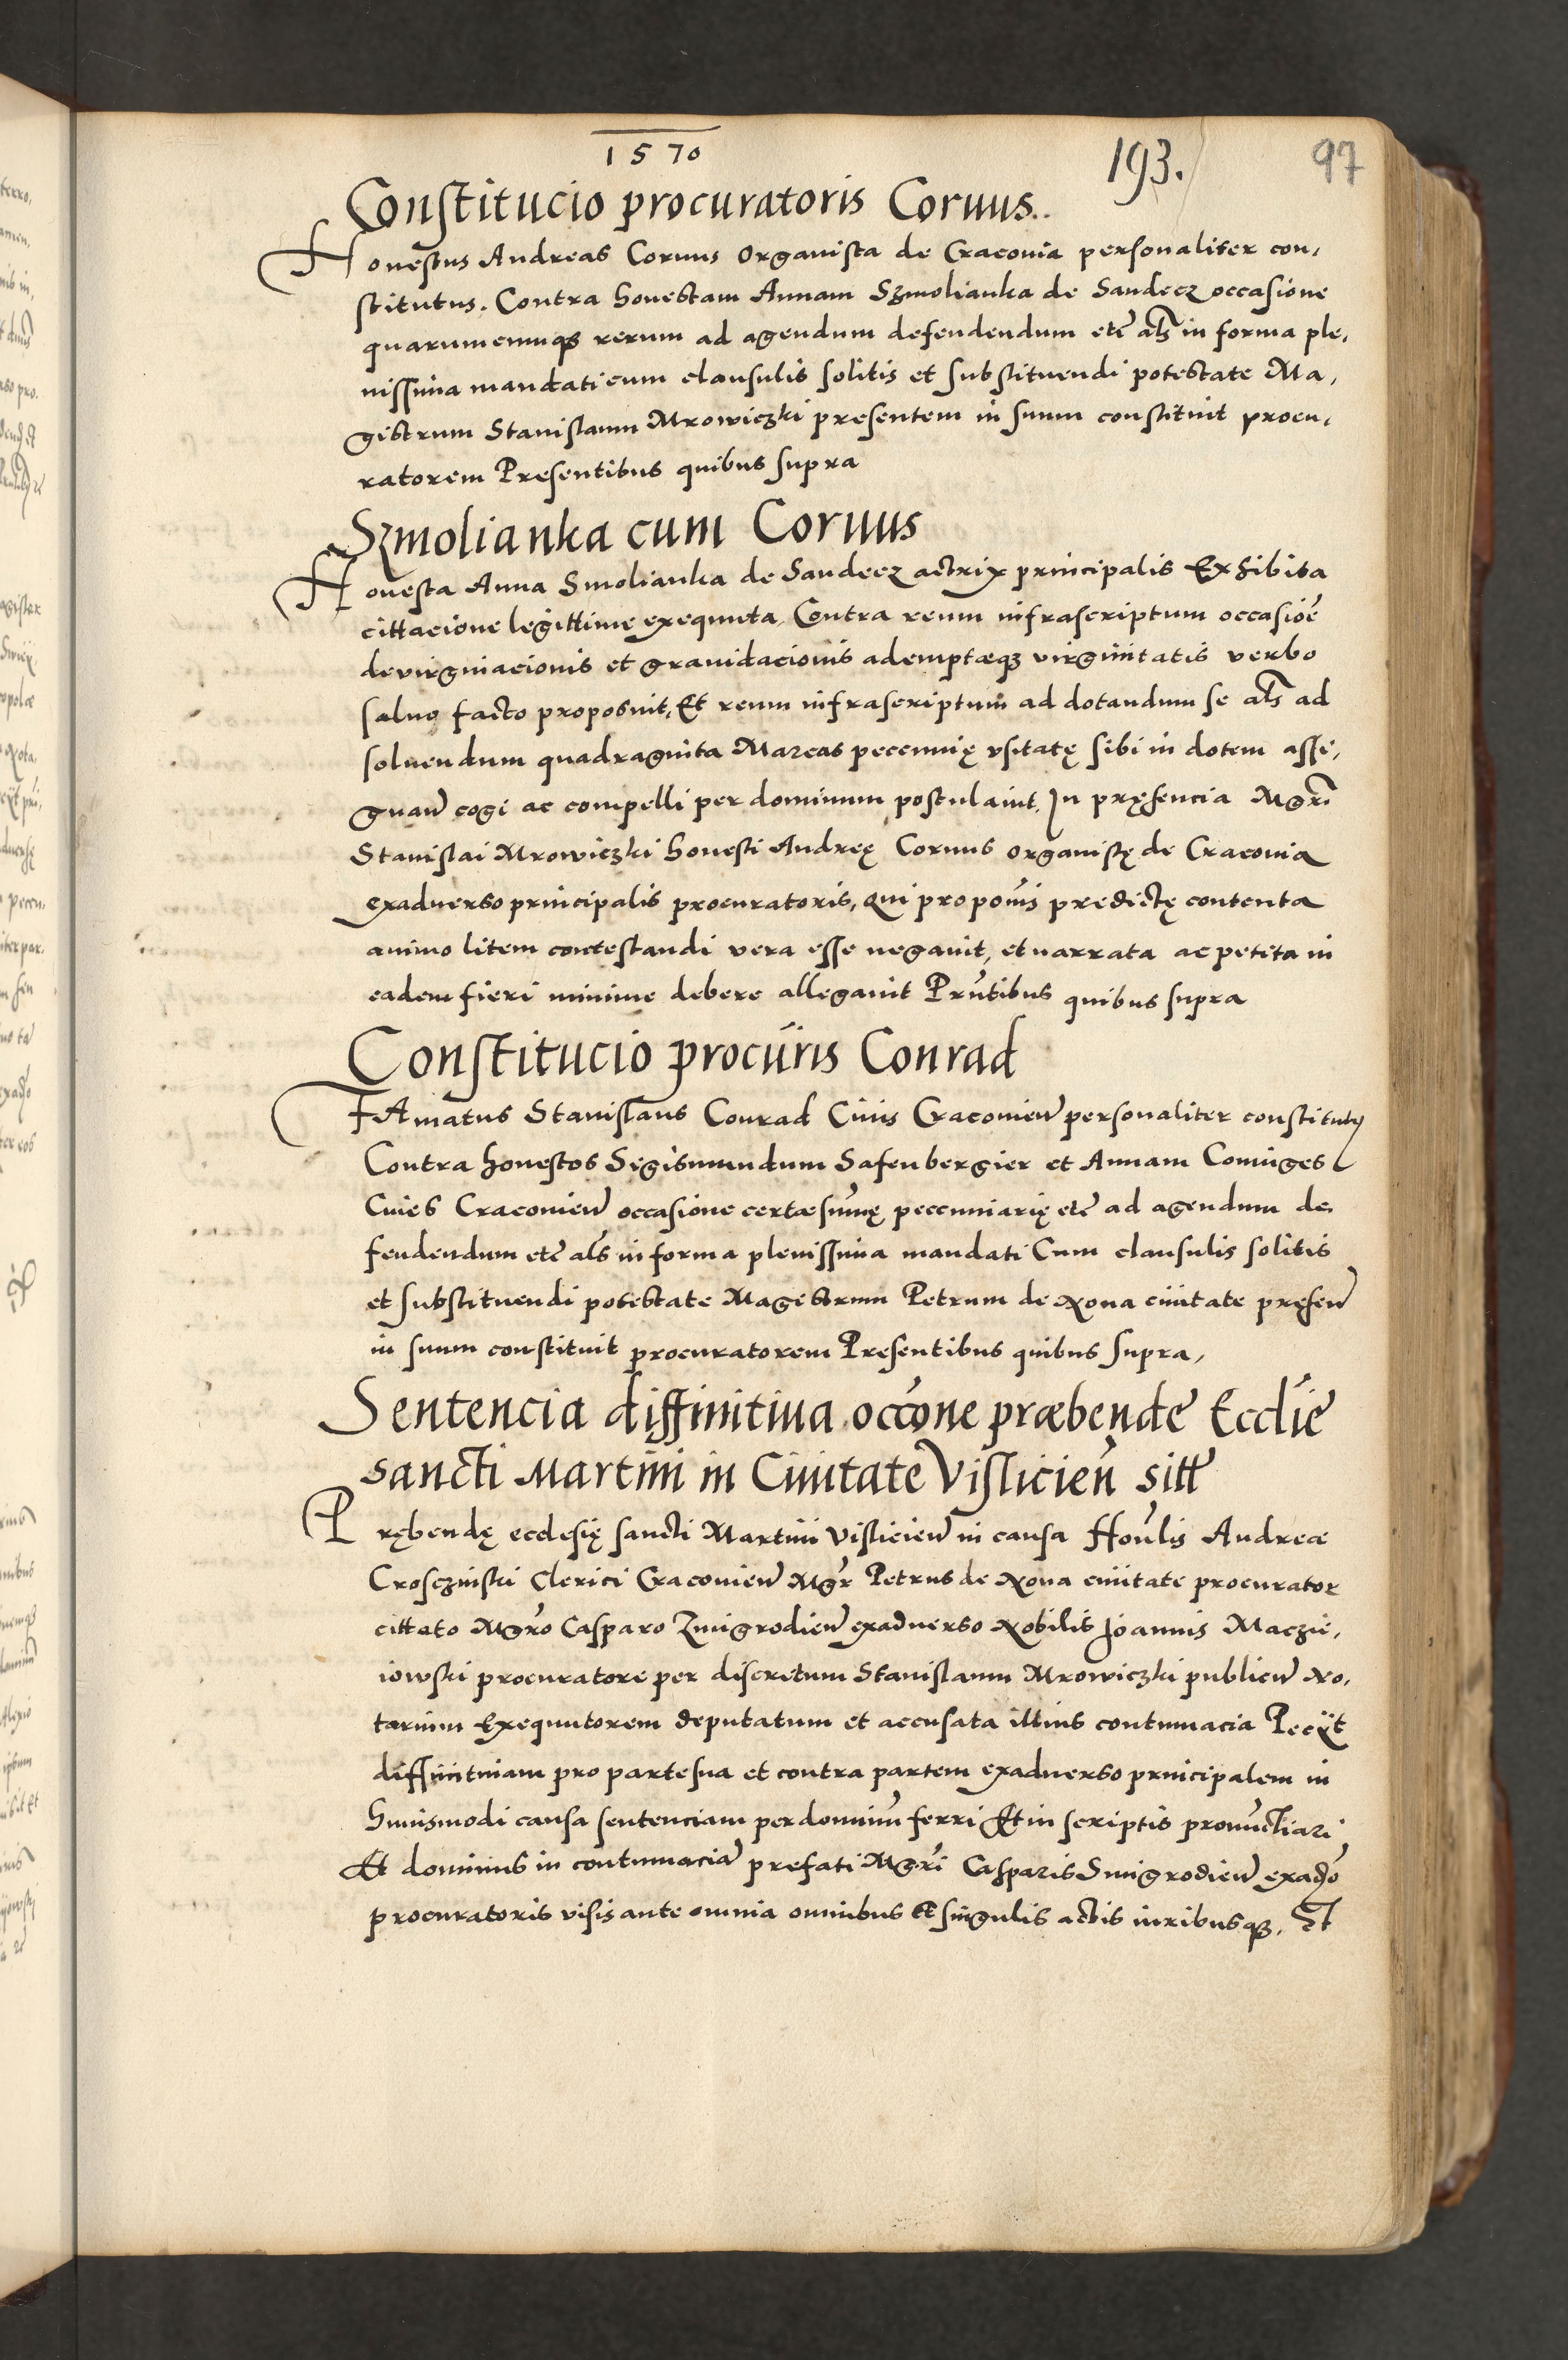 1570
193.
97
Constitucio procuratoris Coruus..
Honestus Andreas Coruus Organista de Cracouia personaliter con,
stitutus. Contra honestam Annam Szmolianka de Sandecz occasione
quarumcumqs rerum ad agendum defendendum etc̃ als̃ in forma ple,
nissima mandati cum clausulis solitis et substituendi potestate Ma,
gistrum Stanislaum Mrowiczki presentem in suum constituit procu,
ratorem Presentibus quibus supra
Szmolianka cum Coruus
Honesta Anna Smolianka de Sandecz actrix principalis Exhibita
cittacione legittime exequuta, Contra reum infrascriptum occasiõe
deuirginacionis et grauidacionis ademptæqȝ virginitatis verbo
saluo facto proposuit, Et reum infrascriptum ad dotandum se als̃ ad
soluendum quadraginta Marcas peccunię vsitatę sibi in dotem assi,
gnan̄ cogi ac compelli per dominum postulauit, In pręsencia Mgrĩ
Stanislai Mrowiczki honesti Andreę Coruus organistę de Cracouia
exaduerso principalis procuratoris, Qui propoñis predictę contenta
animo litem contestandi vera esse negauit, et narrata ac petita in
eadem fieri minime debere allegauit Prñtibus quibus supra
Constitucio procur̃is Conrad
FAmatus Stanislaus Conrad Ciuis Cracouien̄ personaliter constitutꝰ
Contra honestos Sigismundum Safenbergier et Annam Coniuges
Ciues Cracouien̄ occasione certæ sum̃ę peccuniarię etc̃ ad agendum de
fendendum etc̃ als̃ in forma plenissima mandati Cum clausulis solitis
et substituendi potestate Magistrum Petrum de Noua ciuitate pręsen̄
in suum constituit procuratorem Presentibus quibus supra,
Sentencia diffinitiua occõne præbende Eccl̃ie
sancti Martini in Ciuitate Visliciens̄ sitt̃
Prębendę ecclesię sancti Martini Vislicien̄ in causa Hoñlis Andreæ
Crosczinski Clerici Cracouien̄ Mgr̃ Petrus de Noua ciuitate procurator
cittato Mgrõ Casparo Zmigrodien̄ exaduerso Nobilis Joannis Maczie,
iowski procuratore per discretum Stanislaum Mrowiczki publicum̄ No,
tarium Exequutorem deputatum et accusata illius contumacia Peciit
diffinitiuam pro parte sua et contra partem exaduerso principalem in
huiusmodi causa sentenciam per dominũ ferri Et in scriptis pronũctiari
Et dominus in contumaciã prefati Mgrĩ Casparis Smigrodien̄ exadõ
procuratoris visis ante omnia omnibus et singulis actis iuribusqȝ, Et